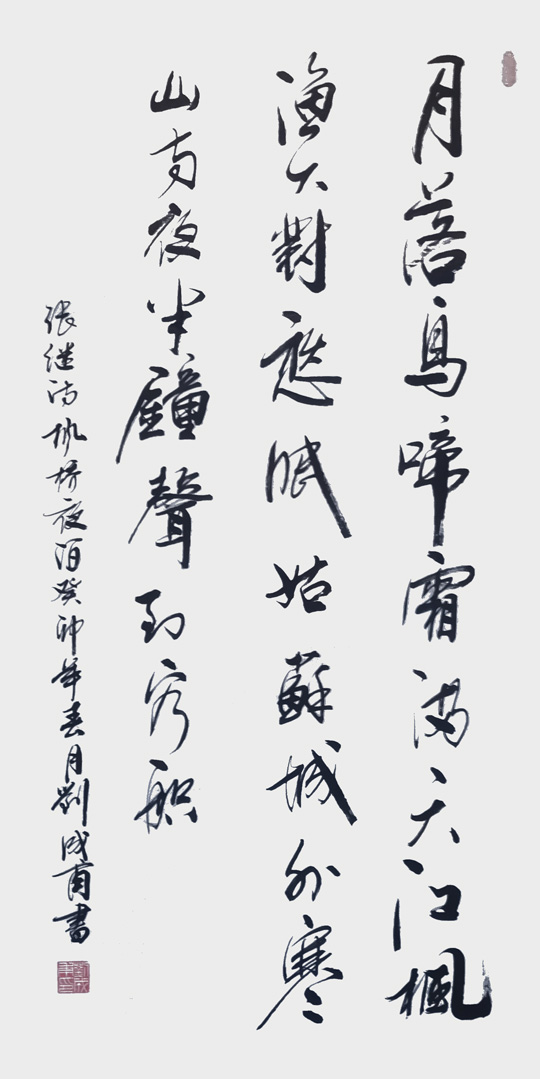 月落烏啼霜满天江楓
渔火對愁眠姑蘇城外寒
山寺夜半鐘聲到客船
张继诗枫橋夜泊癸卯年春月劉成
書